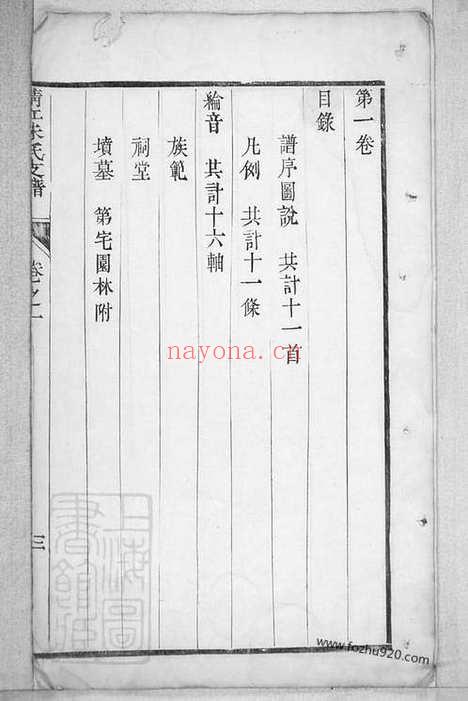 第一卷
目錄
譜序圖說　共計十一首
凡例　共計十一條
綸音　共計十六軸
族範
祠堂
墳墓　第宅園林附
朱氏支譜
卷之一
三
nayona.cn
上海圖書館藏
www.fozhu920.com